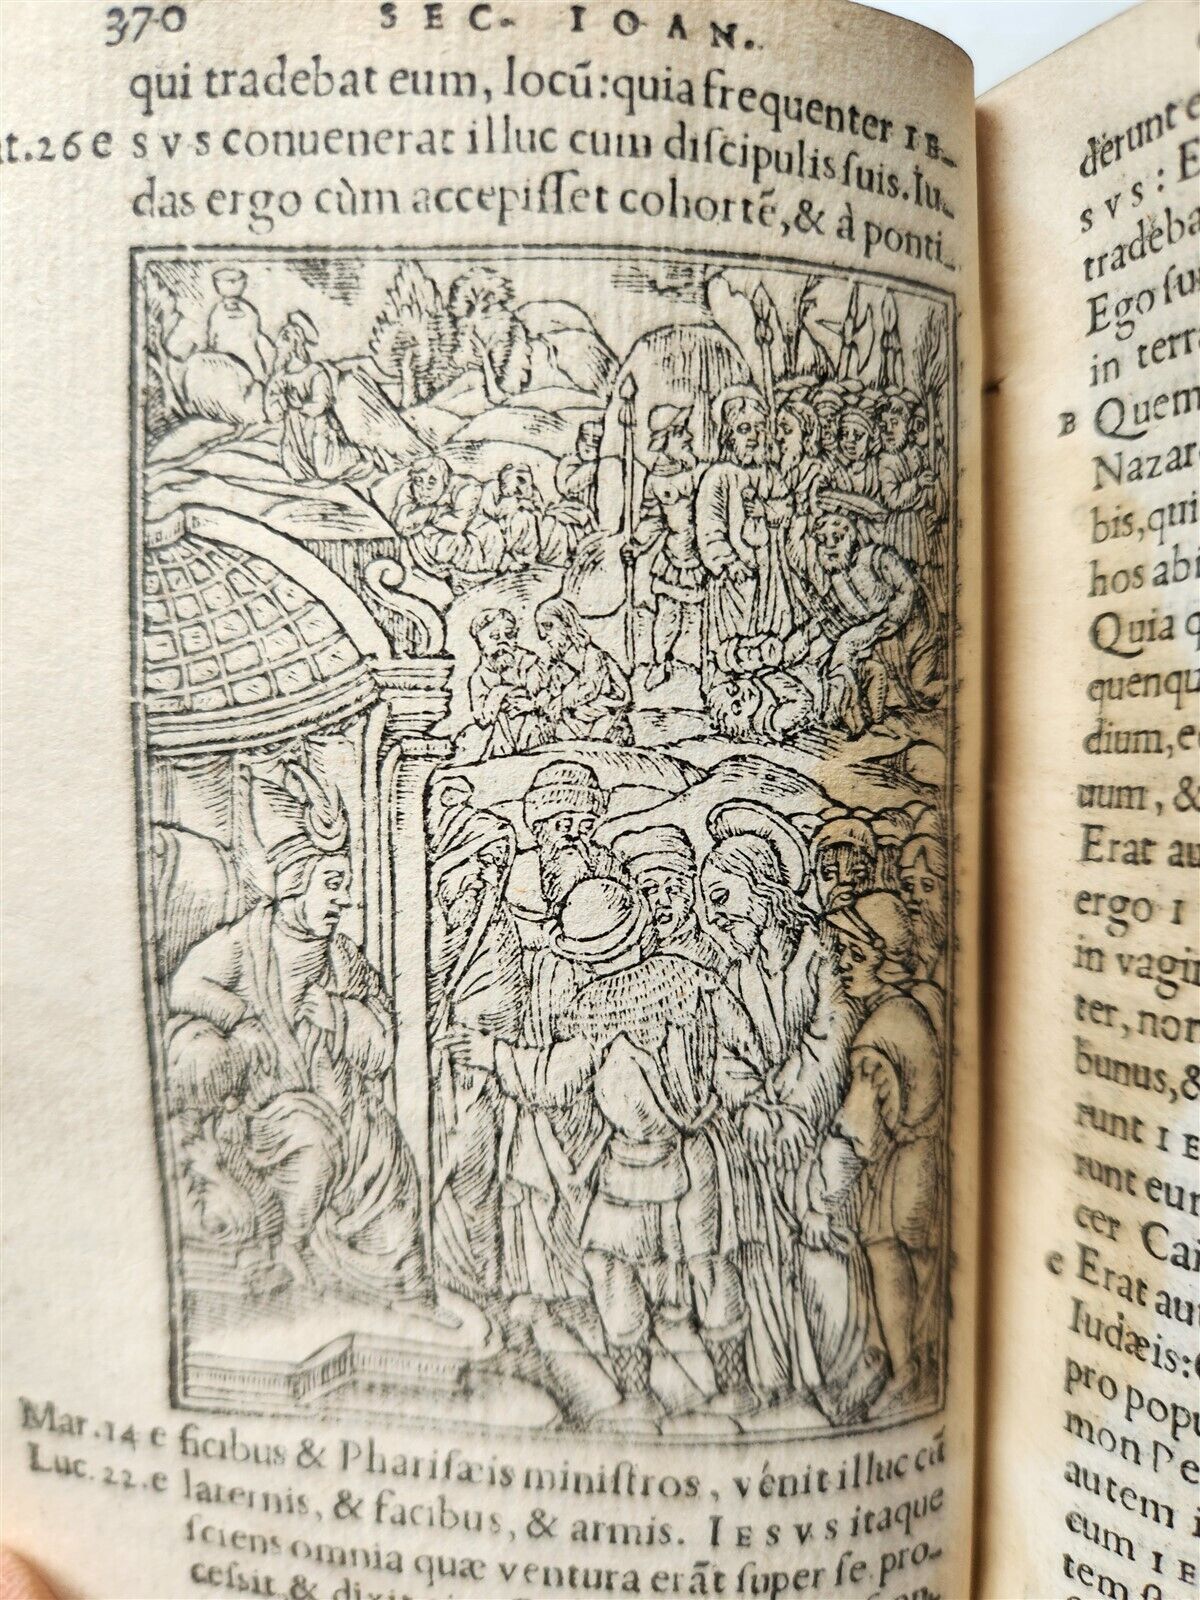 370 SEC. IOAN.
qui tradebat eum, locũ: quia frequenter IE-
t.26 e svs conuenerat illuc cum discipulis suis. Iu-
das ergo cùm accepisset cohortẽ, & à ponti-
Mar. 14 e ficibus & Pharisæis ministros, vénit illuc cũ
Luc. 22. e laternis, & facibus, & armis. IESVS itaque
sciens omnia quæ ventura erãt super se pro-
cessit, & dixit
derunt e
svs: E
tradeba
Ego su
in terra
B Quem
Nazar
bis, qui
hos abi
Quia q
quenqu
dium, e
uum, &
Erat au
ergo I
in vagin
ter, non
bunus, &
runt IE
runt eum
cer Cai
c Erat aut
Iudæis:
pro popu
mon Pe
autem i
cum IE
tem